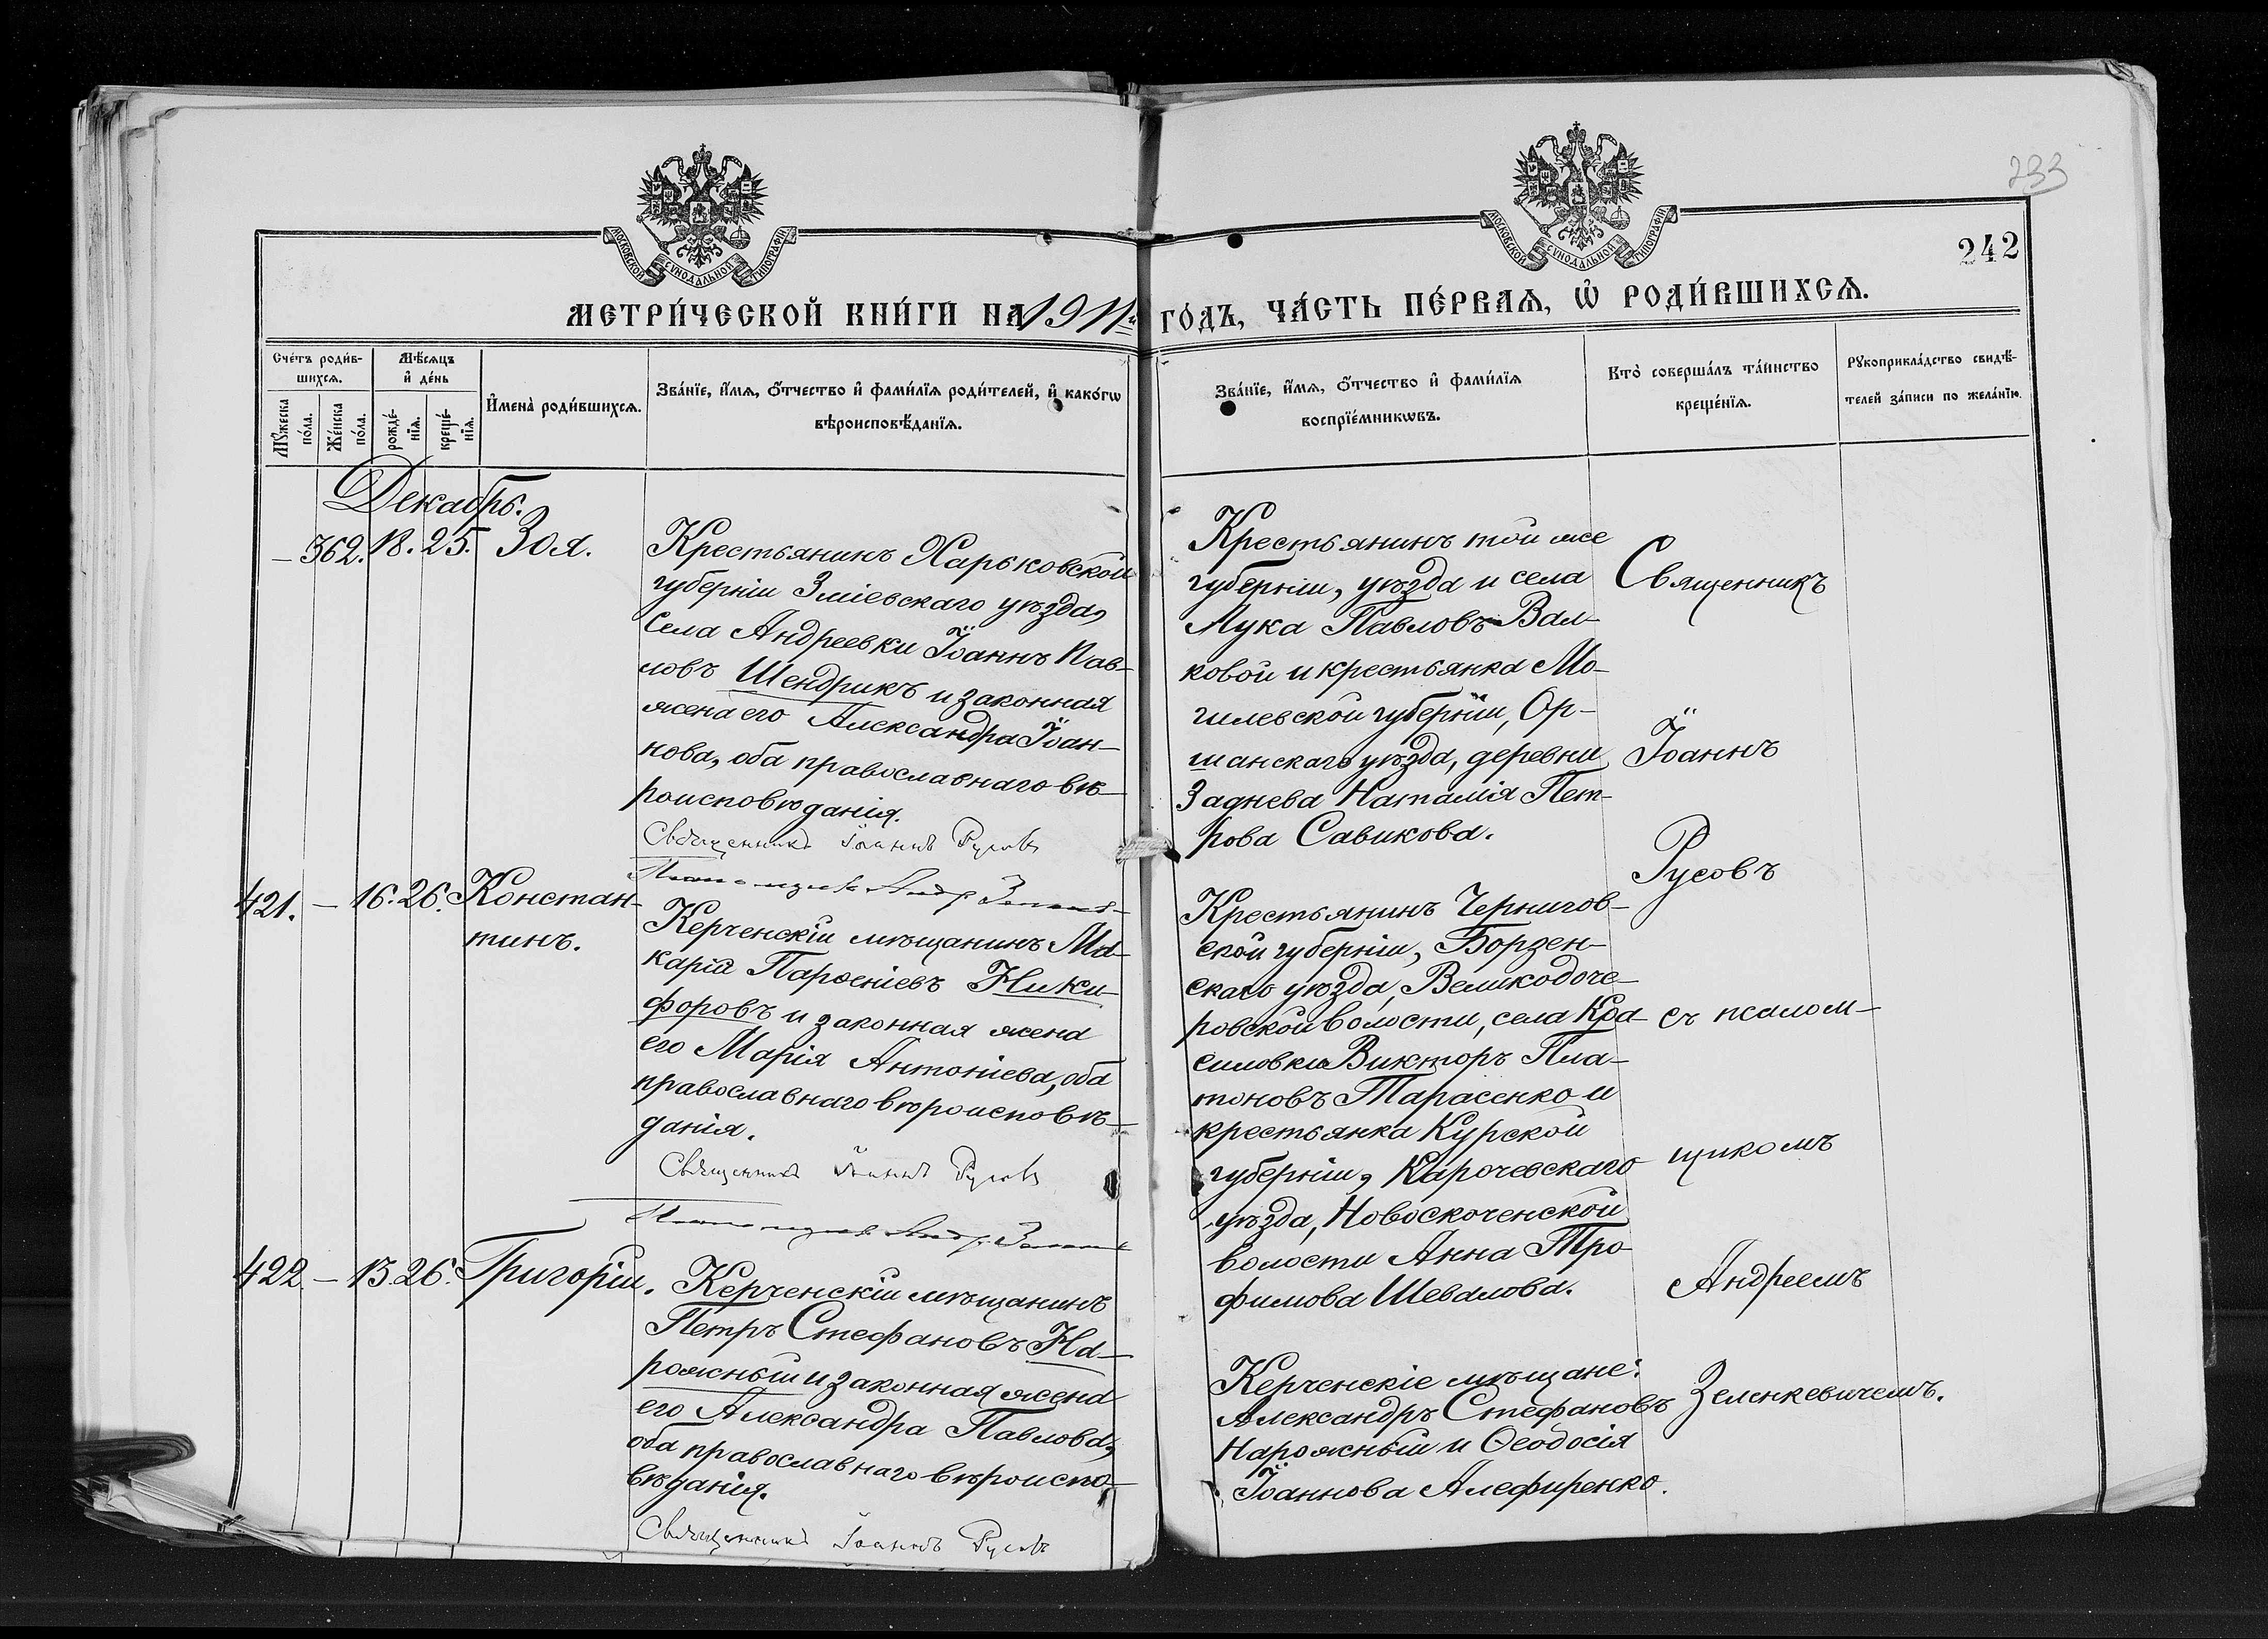 233
242
МОСКОВСКОЙ СѴНОДАЛЬНОЙ ТИПОГРАФІИ
МОСКОВСКОЙ СѴНОДАЛЬНОЙ ТИПОГРАФІИ
МЕТРИ́ЧЕСКОЙ КНИ́ГИ НА 1911й ГО́ДЪ, ЧА́СТЬ ПЕ́РВАѦ, Ѡ РОДИ́ВШИХСѦ.
Сче́тъ роди́в-
шихсѧ.
Мꙋ́жеска по́ла.
Же́нска по́ла.
Мѣ́сѧцъ
и҆ де́нь
рожде́-
нїѧ.
креще́-
нїѧ.
И҆мена̀ роди́вшихсѧ.
Зва́нїе, и҆́мѧ, ѻ҆́тчество и҆ фами́лїѧ роди́телей, и҆ како́гѡ
вѣроисповѣ́данїѧ.
Зва́нїе, и҆́мѧ, ѻ҆́тчество и҆ фами́лїѧ
воспрїе́мникѡвъ.
Кто̀ соверша́лъ та́инство
креще́нїѧ.
Рꙋкоприкла́дство свидѣ́-
телей за́писи по жела́нїю.
Декабрь.
— 362. 18. 25. Зоя.
Крестьянинъ Харьковской
губерніи Зміевскаго уѣзда,
села Андреевки Іоаннъ Пав-
ловъ Шендрикъ и законная
жена его Александра Іоан-
нова, оба православнаго вѣ-
роисповѣданія.
Священникъ Іоаннъ Русовъ
Крестьянинъ той же
губерніи, уѣзда и села
Лука Павловъ Вал-
ковой и крестьянка Мо-
гилевской губерніи, Ор-
шанскаго уѣзда, деревни
Заднева Наталія Пет-
рова Савикова.
Священникъ
Іоаннъ
Русовъ
съ псалом-
щикомъ
Андреемъ
Зеленкевичемъ.
421. — 16. 26. Констан-
тинъ.
Керченскій мѣщанинъ Ма-
карій Парѳеніевъ Ники-
форовъ и законная жена
его Марія Антоніева, оба
православнаго вѣроисповѣ-
данія.
Священникъ Іоаннъ Русовъ
Крестьянинъ Чернигов-
ской губерніи, Борзен-
скаго уѣзда, Великодоче-
ровской волости, села Кра-
силовки Викторъ Пла-
тоновъ Тарасенко и
крестьянка Курской
губерніи, Карочевскаго
уѣзда, Новоскоченской
волости Анна Тро-
фимова Шевалова.
422. — 13. 26. Григорій.
Керченскій мѣщанинъ
Петръ Стефановъ На-
рожный и законная жена
его Александра Павлова,
оба православнаго вѣроиспо-
вѣданія.
Священникъ Іоаннъ Русовъ
Керченскіе мѣщане:
Александръ Стефановъ
Нарожный и Ѳеодосія
Іоаннова Алефиренко.